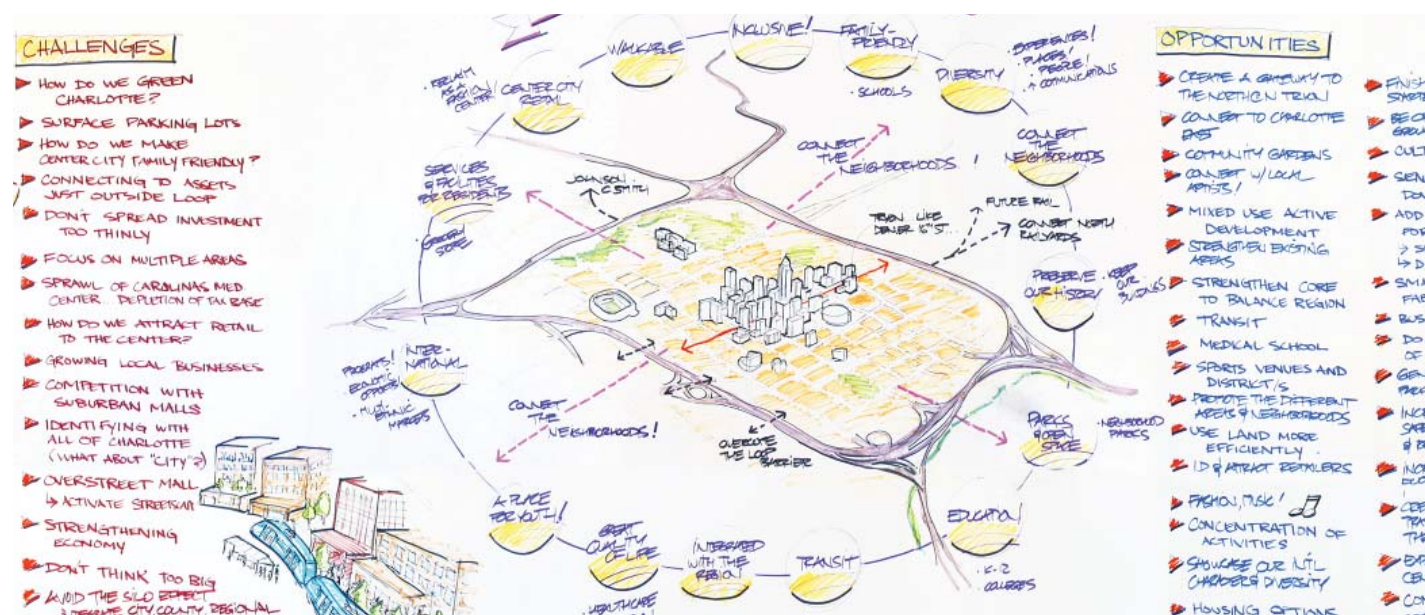 CHALLENGES
HOW DO WE GREEN
CHARLOTTE?
SURFACE PARKING LOTS
HOW DO WE MAKE
CENTER CITY FAMILY FRIENDLY?
CONNECTING TO ASSETS
JUST OUTSIDE LOOP
DON'T SPREAD INVESTMENT
TOO THINLY
FOCUS ON MULTIPLE AREAS
SPRAWL OF CAROLINAS MED
CENTER.. DEPLETION OF TAX BASE
HOW DO WE ATTRACT RETAIL
TO THE CENTER?
GROWING LOCAL BUSINESSES
COMPETITION WITH
SUBURBAN MALLS
IDENTIFYING WITH
ALL OF CHARLOTTE
(WHAT ABOUT "CITY"?)
OVERSTREET MALL
↳ ACTIVATE
STRENGTHENING
ECONOMY
DON'T THINK TOO BIG
AVOID THE SILO EFFECT
CITY, COUNTY, REGIONAL
RECLAIM
AS A
FASHION
CENTER
CENTER CITY
RETAIL
WALKABLE
INCLUSIVE!
FAMILY-
FRIENDLY
• SCHOOLS
DIVERSITY
• EXPERIENCES!
• PLACES!
• PEOPLE!
• ↑ COMMUNICATIONS
CONNECT
THE
NEIGHBORHOODS
SERVICES
& FACILITIES
FOR RESIDENTS
• GROCERY
STORE
JOHNSON
C SMITH
CONNECT
THE
NEIGHBORHOODS!
TRYON LIKE
DENVER 16TH ST...
FUTURE RAIL
CONNECT NORTH
RAILYARDS
PRESERVE
OUR HISTORY
• KEEP
OUR
BUILDINGS
INTER-
NATIONAL
• MULTI-
ETHNIC
MARKETS
CONNECT
THE
NEIGHBORHOODS!
OVERCOME
THE LOOP
BARRIER
PARKS
& OPEN
SPACE
• NEIGHBORHOOD
PARKS
A PLACE
FOR YOUTH!
GREAT
QUALITY
OF LIFE
• HEALTHCARE
INTEGRATED
WITH THE
REGION
TRANSIT
EDUCATION
• K-12
• COLLEGES
OPPORTUNITIES
CREATE A GATEWAY TO
THE NORTH ON TRYON
CONNECT TO CHARLOTTE
COMMUNITY GARDENS
CONNECT W/ LOCAL
ARTISTS!
MIXED USE ACTIVE
DEVELOPMENT
STRENGTHEN EXISTING
AREAS
STRENGTHEN CORE
TO BALANCE REGION
TRANSIT
MEDICAL SCHOOL
SPORTS VENUES AND
DISTRICT/S
PROMOTE THE DIFFERENT
AREAS & NEIGHBORHOODS
USE LAND MORE
EFFICIENTLY
ID & ATTRACT RETAILERS
FASHION, MUSIC!
CONCENTRATION OF
ACTIVITIES
SHOWCASE OUR INT'L
CHARACTER & DIVERSITY
HOUSING OPTIONS